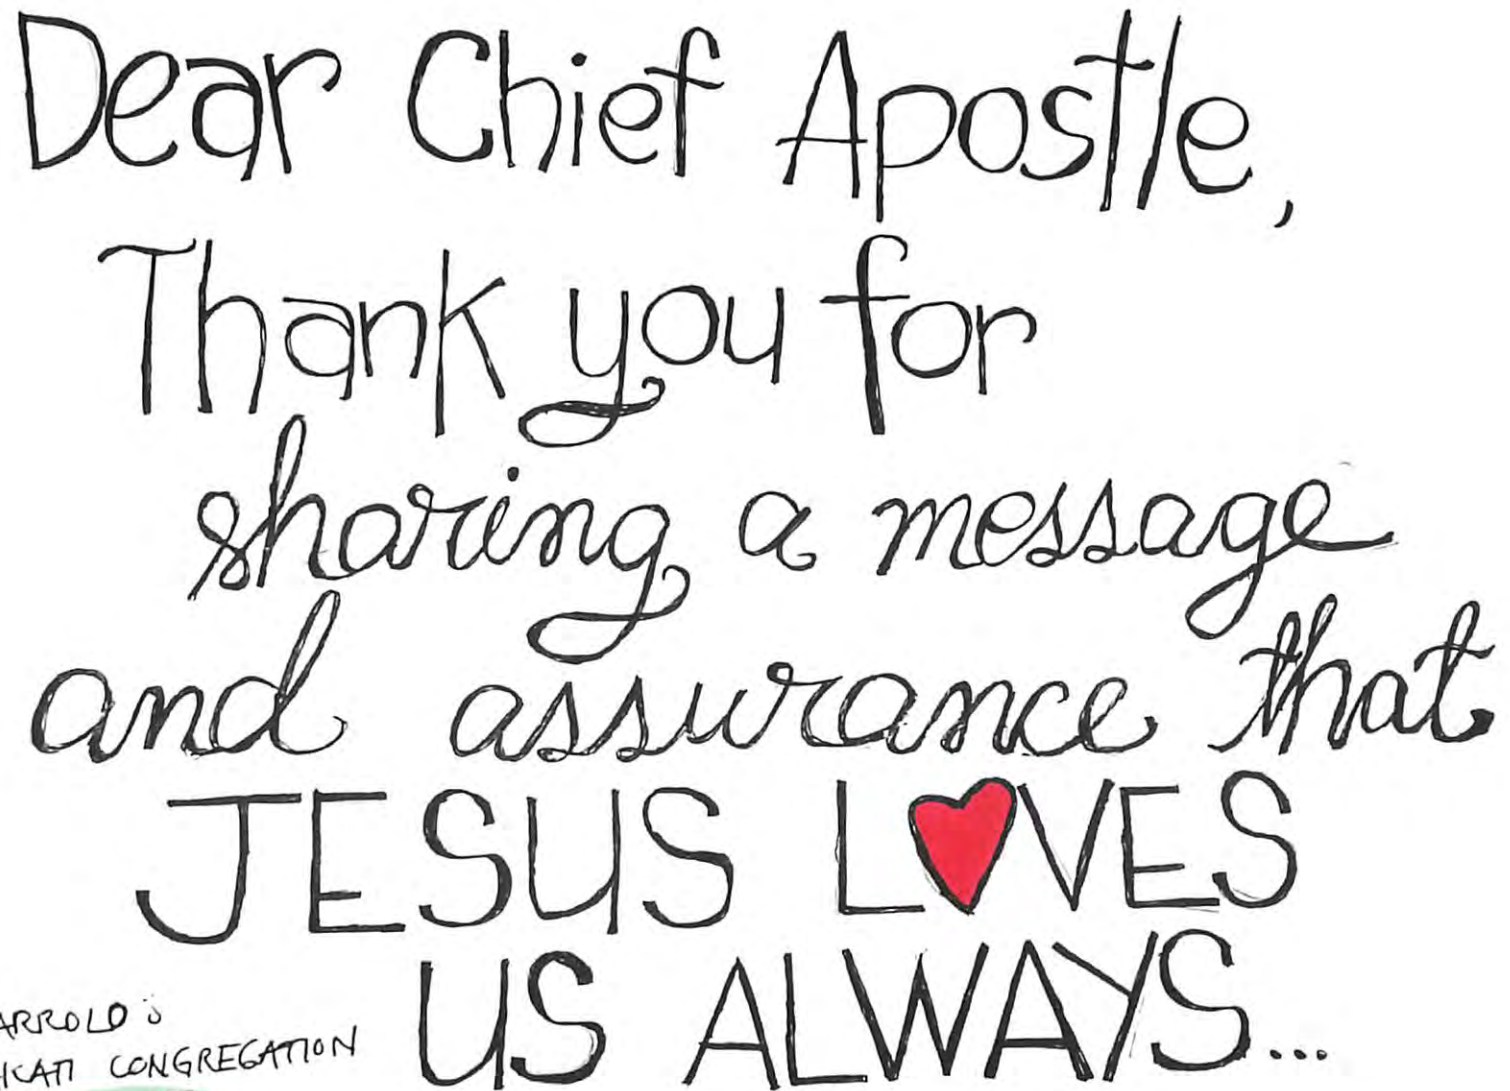 Dear Chief Apostle,
Thank you for
sharing a message
and assurance that
JESUS L❤VES
US ALWAYS...
CONGREGATION